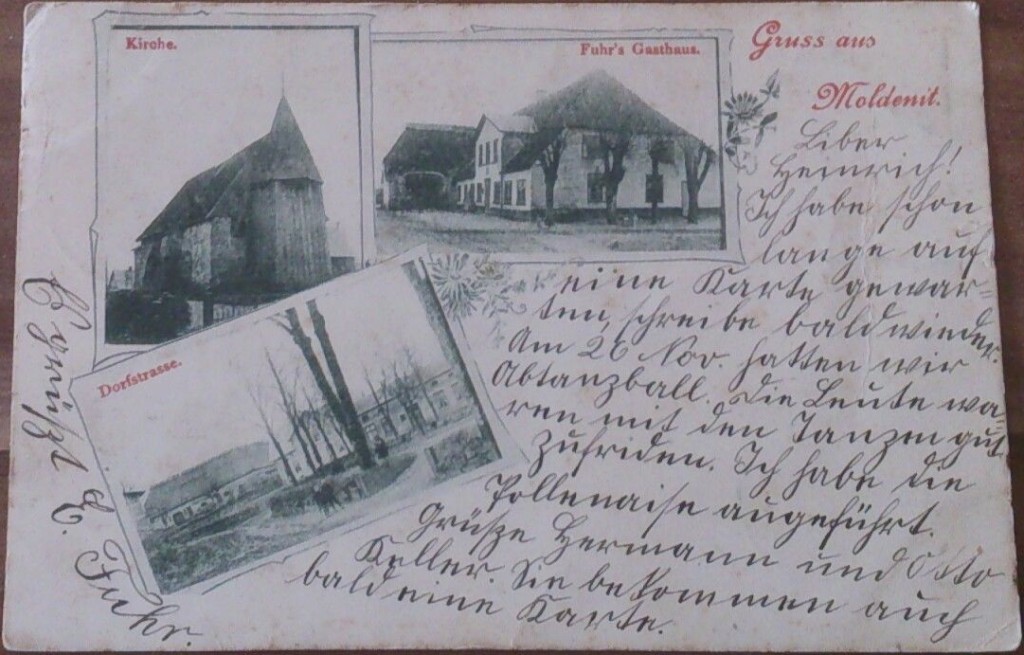 Kirche.
Fuhr's Gasthaus.
Dorfstrasse.
Gruss aus
Moldenit.
Liber
Heinrich!
Ich habe schon
lange auf
eine Karte gewar-
ten, schreibe bald wieder.
Am 26 Nov. hatten wir
Abtanzball. Die Leute wa-
ren mit den Tanzen gut
zufriden. Ich habe die
Pollenaise augeführt.
Grüße Hermann und Otto
Keller. Sie bekommen auch
bald eine Karte.
Fuhr.